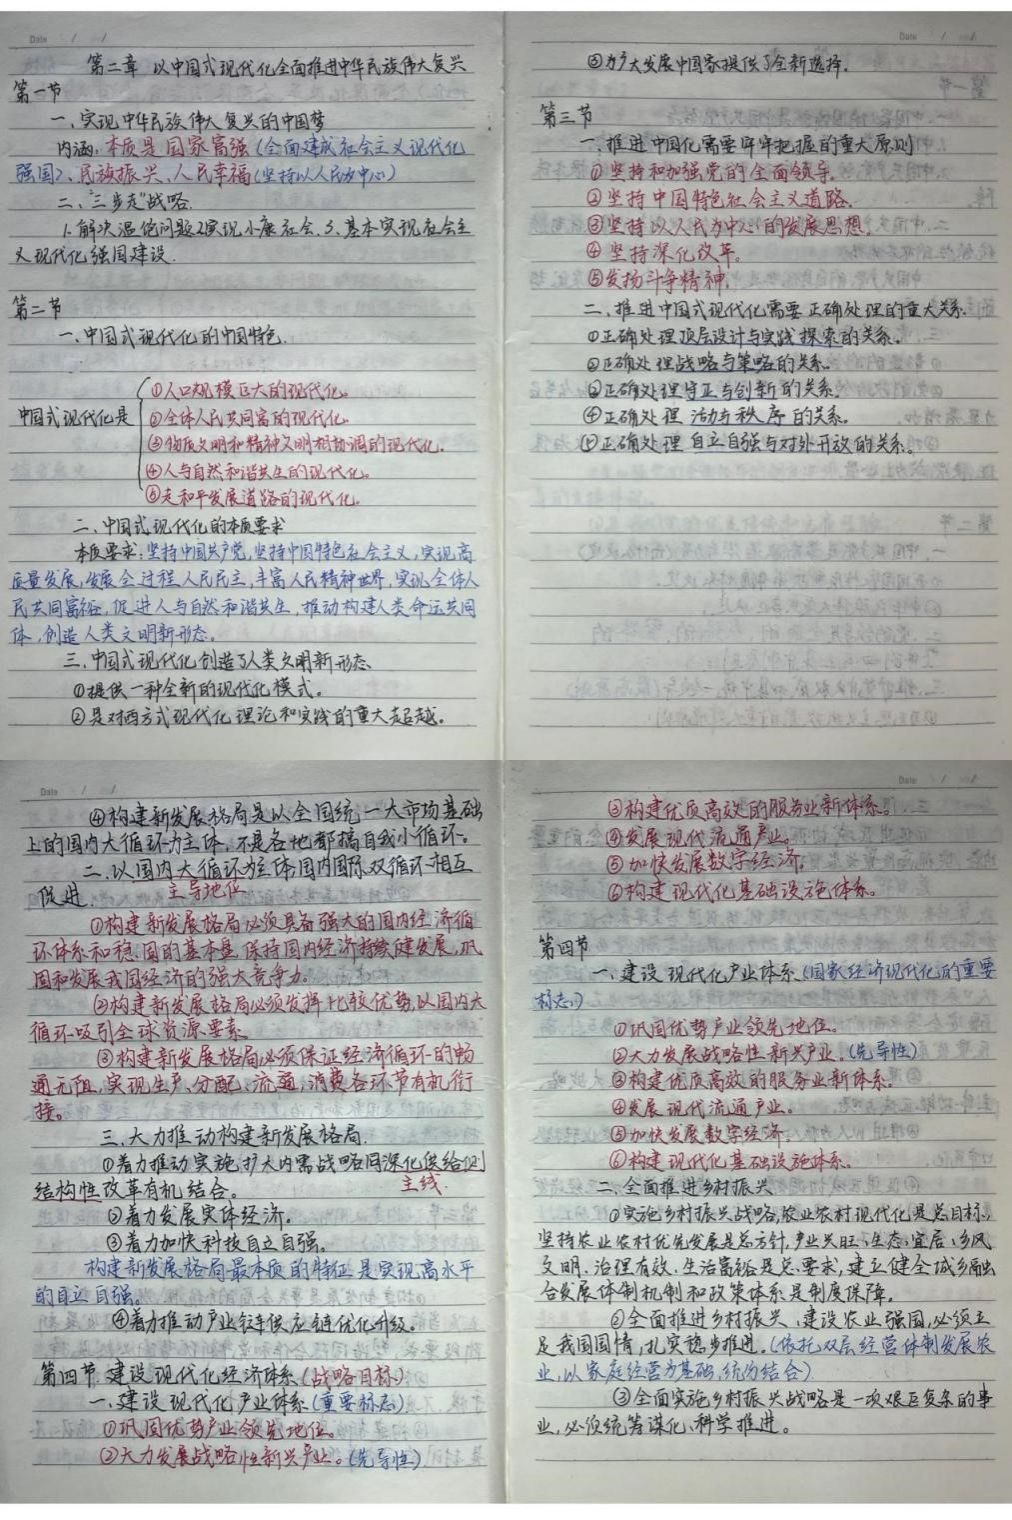 Date / /
第二章 以中国式现代化全面推进中华民族伟大复兴
第一节
一、实现中华民族伟大复兴的中国梦
内涵:本质是国家富强(全面建成社会主义现代化
强国)、民族振兴、人民幸福(坚持以人民为中心)
二、"三步走"战略.
1.解决温饱问题2.实现小康社会、3、基本实现社会主
义现代化强国建设.
第二节
一、中国式现代化的中国特色.
中国式现代化是
①人口规模巨大的现代化。
②全体人民共同富的现代化。
③物质文明和精神文明相协调的现代化.
④人与自然和谐共生的现代化。
⑤走和平发展道路的现代化。
二、中国式现代化的本质要求
本质要求:坚持中国共产党,坚持中国特色社会主义,实现高
质量发展,发展全过程人民民主,丰富人民精神世界,实现全体人
民共同富裕,促进人与自然和谐共生,推动构建人类命运共同
体,创造人类文明新形态。
三、中国式现代化创造了人类文明新形态
①提供一种全新的现代化模式。
②是对西方式现代化理论和实践的重大超越。
Date / /
③为扩大发展中国家提供了全新选择.
第三节
一、推进中国化需要牢牢把握的重大原则
①坚持和加强党的全面领导.
②坚持中国特色社会主义道路.
③坚持以人民为中心的发展思想.
④坚持深化改革。
⑤发扬斗争精神.
二、推进中国式现代化需要正确处理的重大关系.
①正确处理顶层设计与实践探索的关系。
②正确处理战略与策略的关系.
③正确处理守正与创新的关系.
④正确处理活动与秩序的关系.
⑤正确处理自立自强与对外开放的关系。
Date / /
④构建新发展格局是以全国统一大市场基础
上的国内大循环为主体,不是各地都搞自我小循环。
二、以国内大循环为主体国内国际双循环相互
促进.
主导地位
①构建新发展格局必须具备强大的国内经济循
环体系和稳固的基本盘,保持国内经济持续健发展,巩
固和发展我国经济的强大竞争力.
②构建新发展格局必须发挥比较优势,以国内大
循环吸引全球资源要素.
③构建新发展格局必须保证经济循环的畅
通无阻,实现生产、分配、流通、消费各环节有机衔
接。
三、大力推动构建新发展格局.
①着力推动实施扩大内需战略同深化供给侧
结构性改革有机结合。 主线.
②着力发展实体经济.
③着力加快科技自立自强。
构建新发展格局最本质的特征是实现高水平
的自立自强。
④着力推动产业链供应链优化升级.
第四节 建设现代化经济体系(战略目标)
一、建设现代化产业体系(重要标志)
①巩固优势产业领先地位.
②大力发展战略性新兴产业。(先导性)
Date / /
③构建优质高效的服务业新体系。
④发展现代流通产业。
⑤加快发展数字经济.
⑥构建现代化基础设施体系。
第四节
一、建设现代化产业体系(国家经济现代化的重要
标志)
①巩固优势产业领先地位。
②大力发展战略性新兴产业.(先导性)
③构建优质高效的服务业新体系.
④发展现代流通产业。
⑤加快发展数字经济.
⑥构建现代化基础设施体系。
二、全面推进乡村振兴
①实施乡村振兴战略,农业农村现代化是总目标,
坚持农业农村优先发展是总方针,产业兴旺、生态宜居、乡风
文明、治理有效、生活富裕是总要求,建立健全城乡融
合发展体制机制和政策体系是制度保障.
②全面推进乡村振兴、建设农业强国,必须立
足我国国情,扎实稳步推进.(依托双层经营体制发展农
业,以家庭经营为基础,统分结合).
③全面实施乡村振兴战略是一项艰巨复杂的事
业,必须统筹谋化、科学推进。